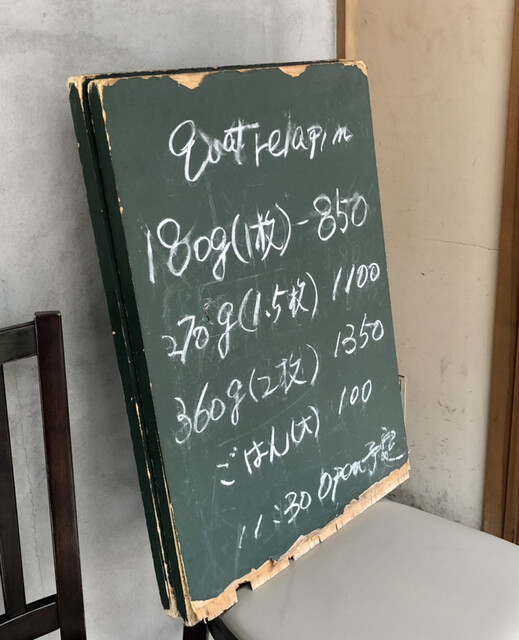 Quatrelapin
180g(1枚)-850
270g(1.5枚) 1100
360g(2枚) 1350
ごはん(大) 100
11:30 Open予定